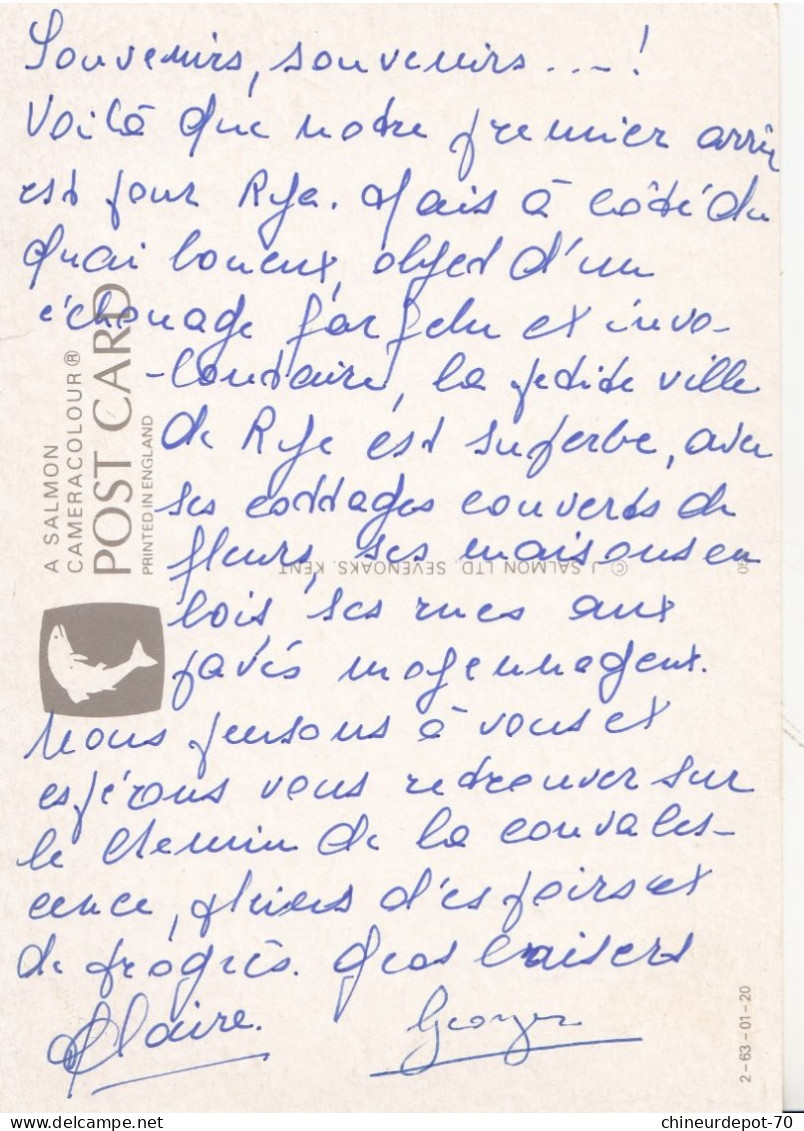 Souvenirs, souvenirs ...!
Voilà que notre premier arrêt
est pour Rye. Mais à côté du
quai boueux, objet d'un
échouage farfelu et invo-
-lontaire, la petite ville
de Rye est superbe, avec
ses cottages couverts de
fleurs, ses maisons en
bois, ses rues aux
pavés moyennageux.
Nous pensons à vous et
espérons vous retrouver sur
le chemin de la convales-
cence, pleins d'espoirs et
de progrès. Gros baisers
Claire. Georges
A SALMON
CAMERACOLOUR®
POST CARD
PRINTED IN ENGLAND
© J. SALMON LTD., SEVENOAKS, KENT
2-63-01-20
chineurdepot-70